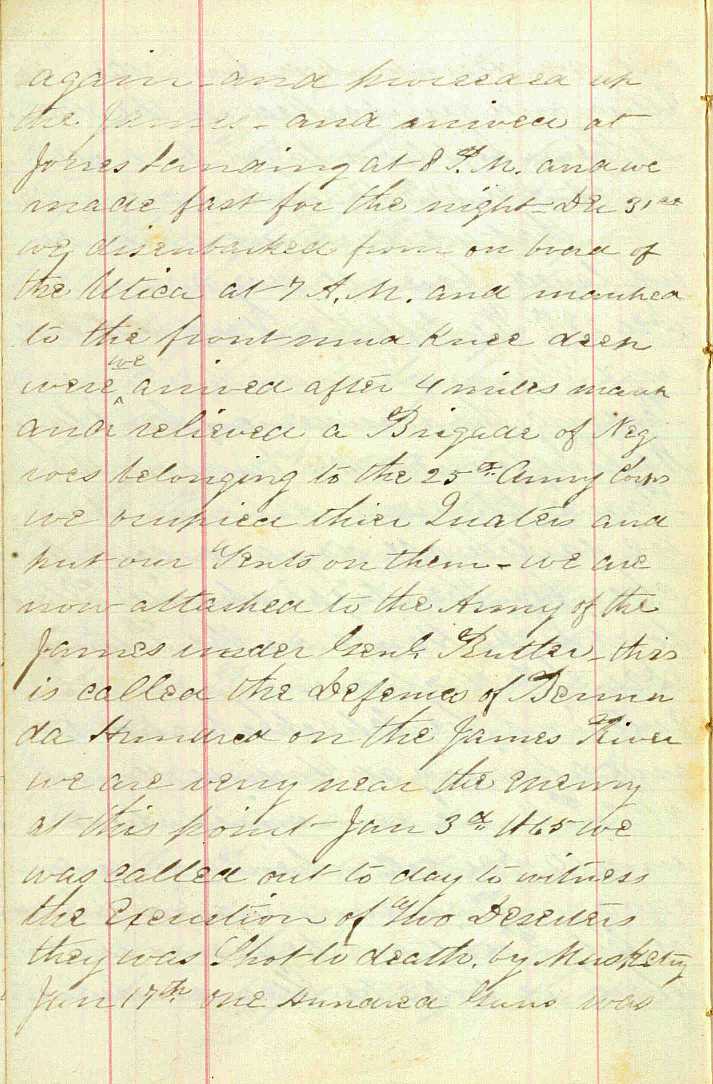 again - and proceeded up
the James - and arived at
Jones Landing at 8 P.M. and we
made fast for the night - Dec 31st
we disenbarked from on board of
the Utica at 7 A.M. and marched
to the front mud knee deep
we
were ^ arived after 4 miles march
and relieved a Brigade of Neg
roes belonging to the 25th Army Corps
we occupied thier Quaters and
put our Tents on them - we are
now attached to the Army of the
James under Genl. Butler - this
is called the Defences of Bermu
da Hundred on the James River
we are verry near the enemy
at this point - Jan 3d 1865 we
was called out to day to witness
the Execution of Two Deserters
they was Shot to death, by Musketry
Jan 17th one Hundred Guns was